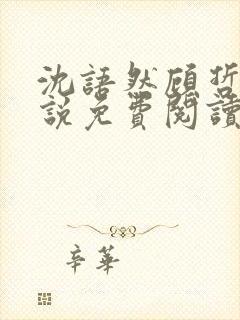 沈語然顧哲
說免費閱讀
辛華